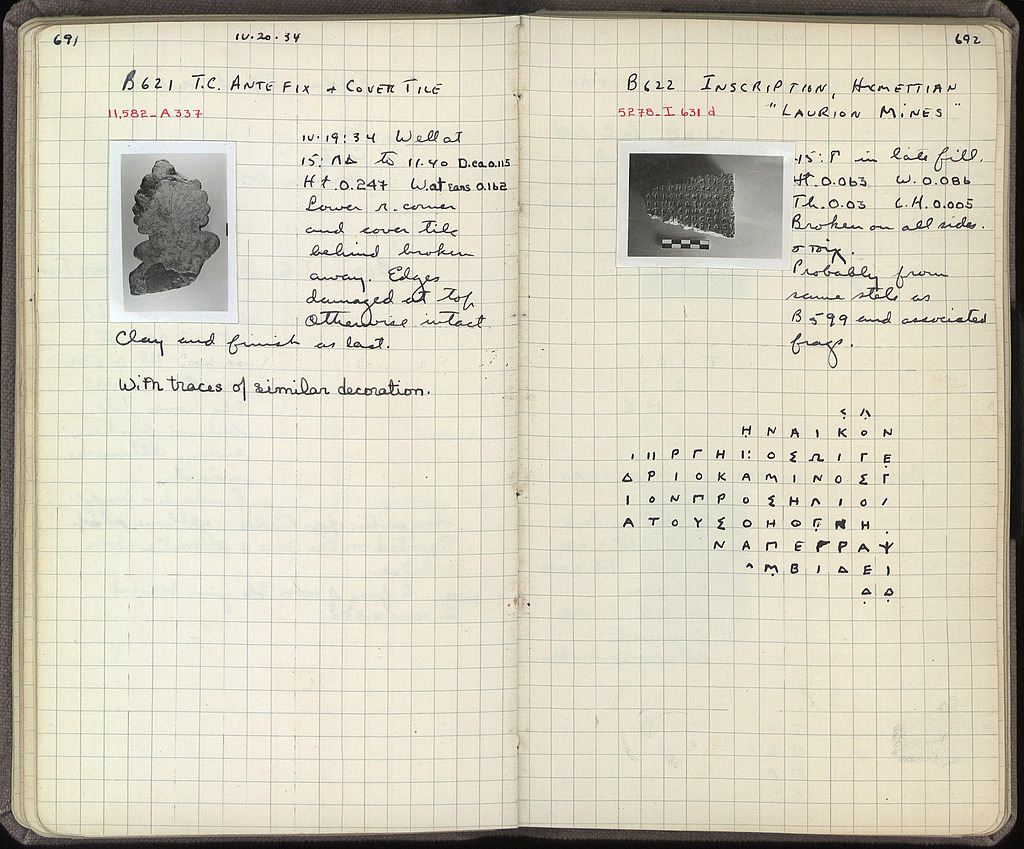 691
IV·20·34
B621 T.C. ANTEFIX + COVER TILE
11,582-A 337
IV·19:34 Well at
15: ΛΔ to 11.40 D.ca.0.115
Ht. 0.247 W. at Fans 0.162
Lower r. corner
and cover tile
behind broken
away. Edges
damaged at top
Otherwise intact
Clay and finish as last.
With traces of similar decoration.
692
B622 INSCRIPTION, HYMETTIAN
"LAURION MINES"
5278-I 631 d
15:Γ in late fill.
Ht. 0.063 W. 0.086
Th. 0.03 L.H. 0.005
Broken on all sides.
στοιχ.
Probably from
same stele as
B 599 and associated
frags.
Η Ν Α Ι Κ Ο Ν
Ρ Γ Η Ι: Ο Σ Ω Ι Γ Ε
Δ Ρ Ι Ο Κ Α Μ Ι Ν Ο Σ Γ
Ι Ο Ν Π Ρ Ο Σ Η Λ Ι Ο
Α Τ Ο Υ Σ Ο Η Ο Γ Ν Η
Ν Α Π Ε Γ Ρ Α Ψ
Μ Β Ι Δ Ε Ι
Δ Δ